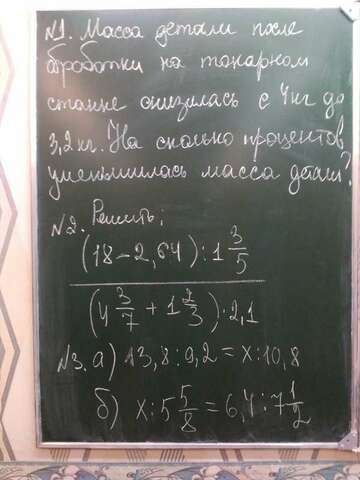 №1. Масса детали после
обработки на токарном
станке снизилась с 4кг до
3,2кг. На сколько процентов
уменьшилась масса детали?
№2. Решить:
(18-2,64):1 3/5
(4 3/7 + 1 2/3)·2,1
№3. а) 13,8:9,2=x:10,8
б) x:5 5/8=6,4:7 1/2